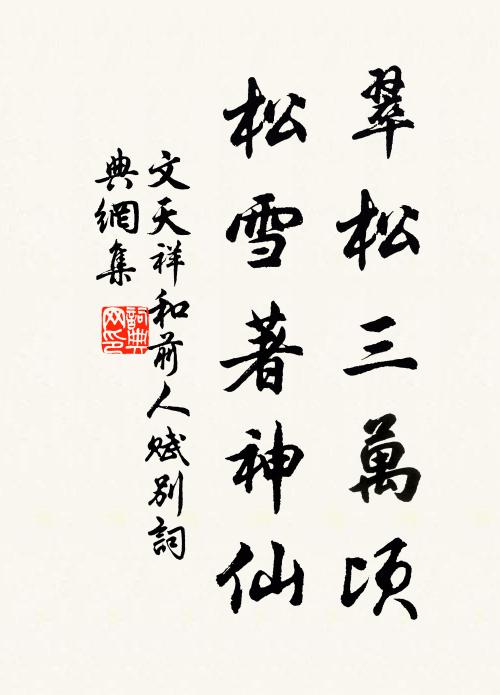 翠松三萬頃
松雪著神仙
文天祥和前人赋别詞
典網集
詞典
网印